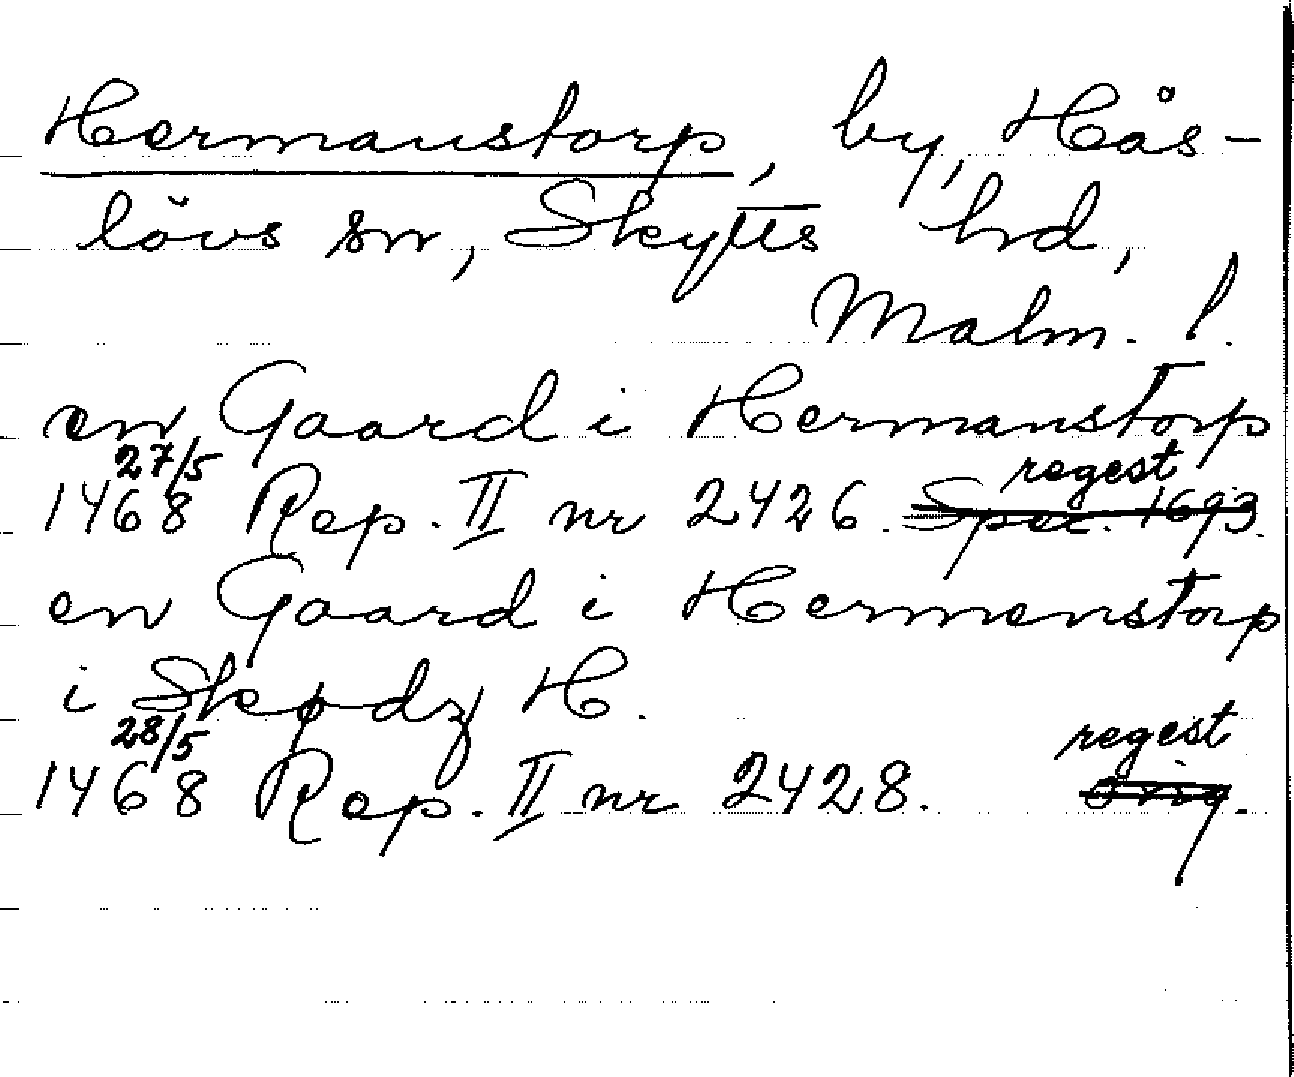 Hermanstorp, by, Hås-
lövs sn, Skytts hd,
Malm. l.
en Gaard i Hermanstorp
27/5 regest
1468 Rep. II nr 2426. Spec. 1693.
en Gaard i Hermenstorp
i Skødz H.
28/5 regest
1468 Rep. II nr 2428. Orig.